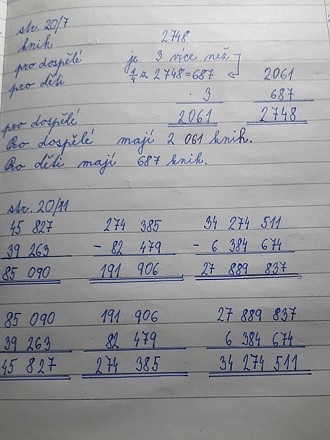 str. 20/7
knih 2748
pro dospělé je 3 více než
pro děti 1/4 z 2748=687 2061
. 3 687
pro dospělé 2061 2748
Pro dospělé mají 2 061 knih.
Pro děti mají 687 knih.
str. 20/11
45 827 274 385 34 274 511
39 263 - 82 479 - 6 384 674
85 090 191 906 27 889 837
85 090 191 906 27 889 837
39 263 82 479 6 384 674
45 827 274 385 34 274 511